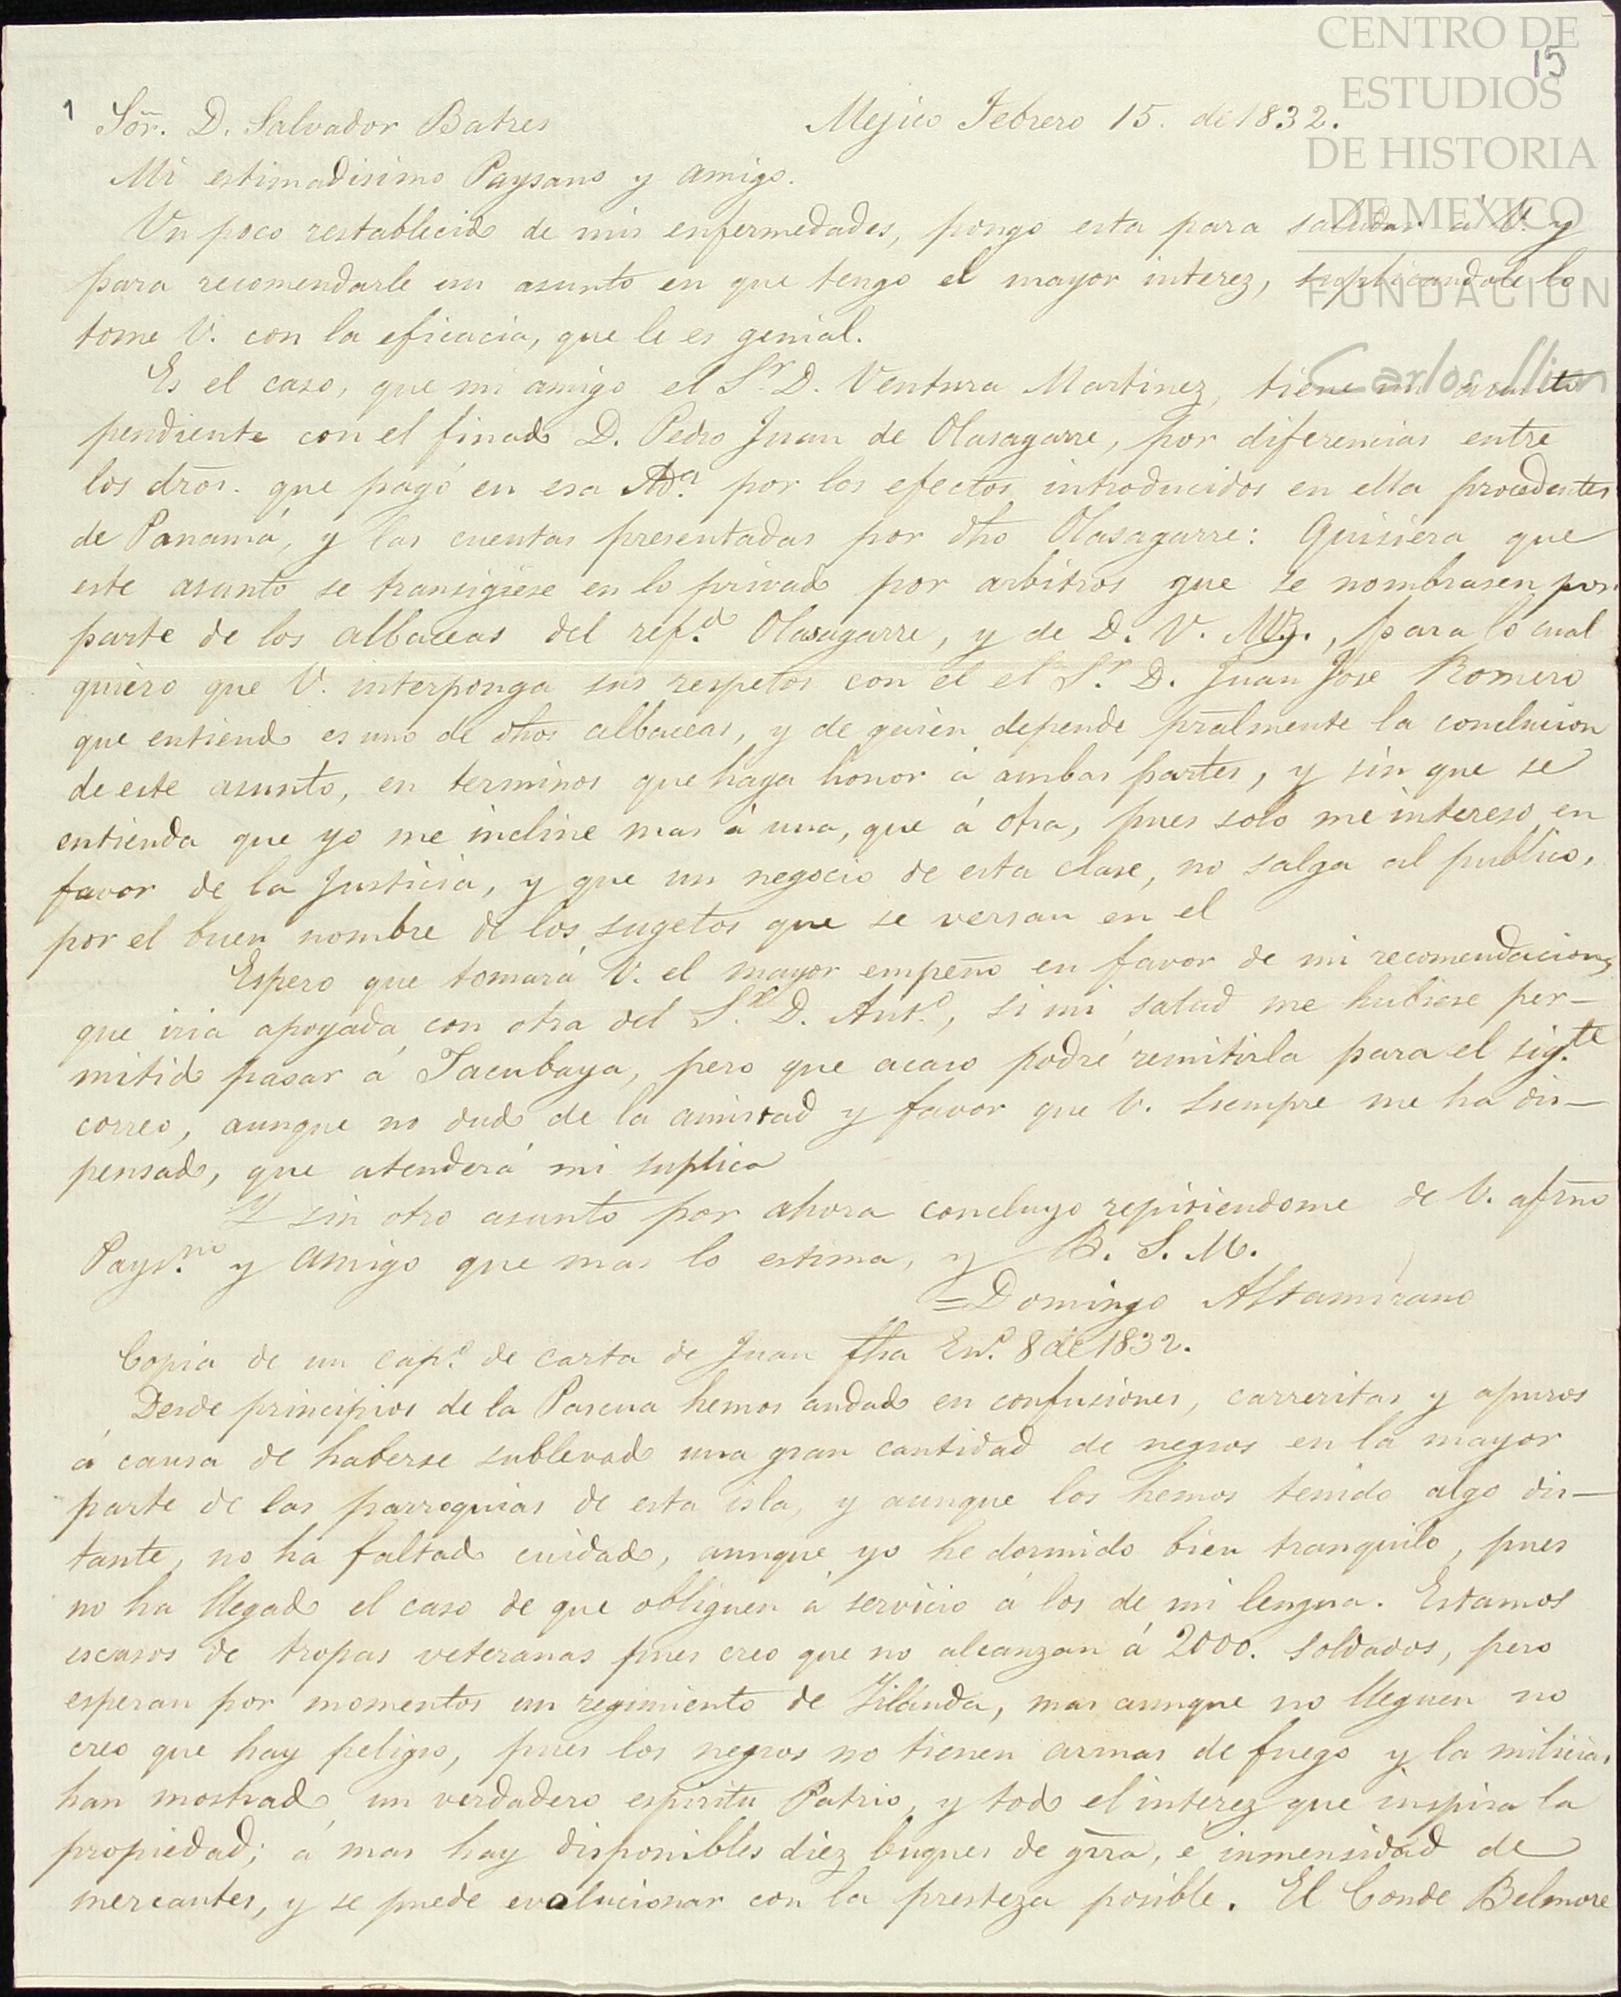 CENTRO DE
ESTUDIOS
DE HISTORIA
DE MEXICO
FUNDACION
Carlos Slim
15
1 Sōr. D. Salvador Batres Mejico Febrero 15. de 1832.
Mi estimadisimo Paysano y amigo.
Un poco restablecido de mis enfermedades, pongo esta para saludar á V. y
para recomendarle un asunto en que tengo el mayor interez, suplicandole lo
tome V. con la eficacia, que le es genial.
Es el caso, que mi amigo el Sr. D. Ventura Martinez, tiene un asunto
pendiente con el finado D. Pedro Juan de Olasagarre, por diferencias entre
los drōs. que pagó en esa Ada. por los efectos introducidos en ella procedentes
de Panamá, y las cuentas presentadas por dho Olasagarre: Quisiera que
este asunto se transigiese en lo privado por arbitros que se nombrasen por
parte de los albaceas del refdo. Olasagarre, y de D. V. Mz., para lo cual
quiero que V. interponga sus respetos con el el Sr. D. Juan Jose Romero
que entiendo es uno de dhos albaceas, y de quien depende prālmente la conclucion
de este asunto, en terminos que haga honor á ambas partes, y sin que se
entienda que yo me incline mas á una, que á otra, pues solo me intereso en
favor de la Justicia, y que un negocio de esta clase, no salga al publico,
por el buen nombre de los sugetos que se versan en el
Espero que tomará V. el mayor empeño en favor de mi recomendacion,
que iria apoyada con otra del Sr. D. Anto., si mi salud me hubiese per-
mitido pasar á Tacubaya, pero que acaso podré remitirla para el sigte.
correo, aunque no dudo de la amistad y favor que V. siempre me ha dis-
pensado, que atenderá mi suplica
Y sin otro asunto por ahora concluyo repitiendome de V. afm̄o
Paysno. y amigo que mas lo estima, y B. S. M.
=Domingo Altamirano
Copia de un capo. de carta de Juan fha Eno. 8 de 1832.
Desde principios de la Pascua hemos andado en confusiones, carreritas y apuros
á causa de haberse sublevado una gran cantidad de negros en la mayor
parte de las parroquias de esta isla, y aunque los hemos tenido algo dis-
tante, no ha faltado cuidado, aunque yo he dormido bien tranquilo, pues
no ha llegado el caso de que obliguen á servicio á los de mi lengua. Estamos
escasos de tropas veteranas pues creo que no alcanzan á 2000. soldados, pero
esperan por momentos un regimiento de Yilánda, mas aunque no lleguen no
creo que hay peligro, pues los negros no tienen armas de fuego y la milicias
han mostrado un verdadero espiritu Patrio, y todo el interez que inspira la
propiedad; á mas hay disponibles diez buques de grrā, é inmensidad de
mercantes, y se puede evolucionar con la presteza posible. El Conde Belmore